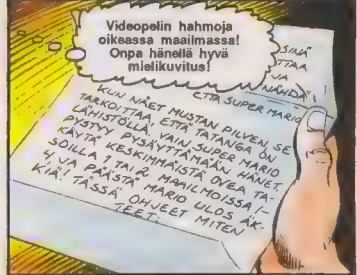 Videopelin hahmoja
oikeassa maailmassa!
Onpa hänellä hyvä
mielikuvitus!
SINÄ
TTAA
JA
NÄHDÄ
ETTÄ SUPER MARIO
KUN NÄET MUSTAN PILVEN, SE
TARKOITTAA, ETTÄ TATANGA ON
LÄHISTÖLLÄ. VAIN SUPER MARIO
PYSTYY PYSÄYTTÄMÄÄN HÄNET.
KÄYTÄ KESKIMMÄISTÄ OVEA TA-
SOILLA 1 TAI 2 MAAILMOISSA 1-
4, JA PÄÄSTÄ MARIO ULOS ÄK-
KIÄ! TÄSSÄ OHJEET MITEN
TEET: